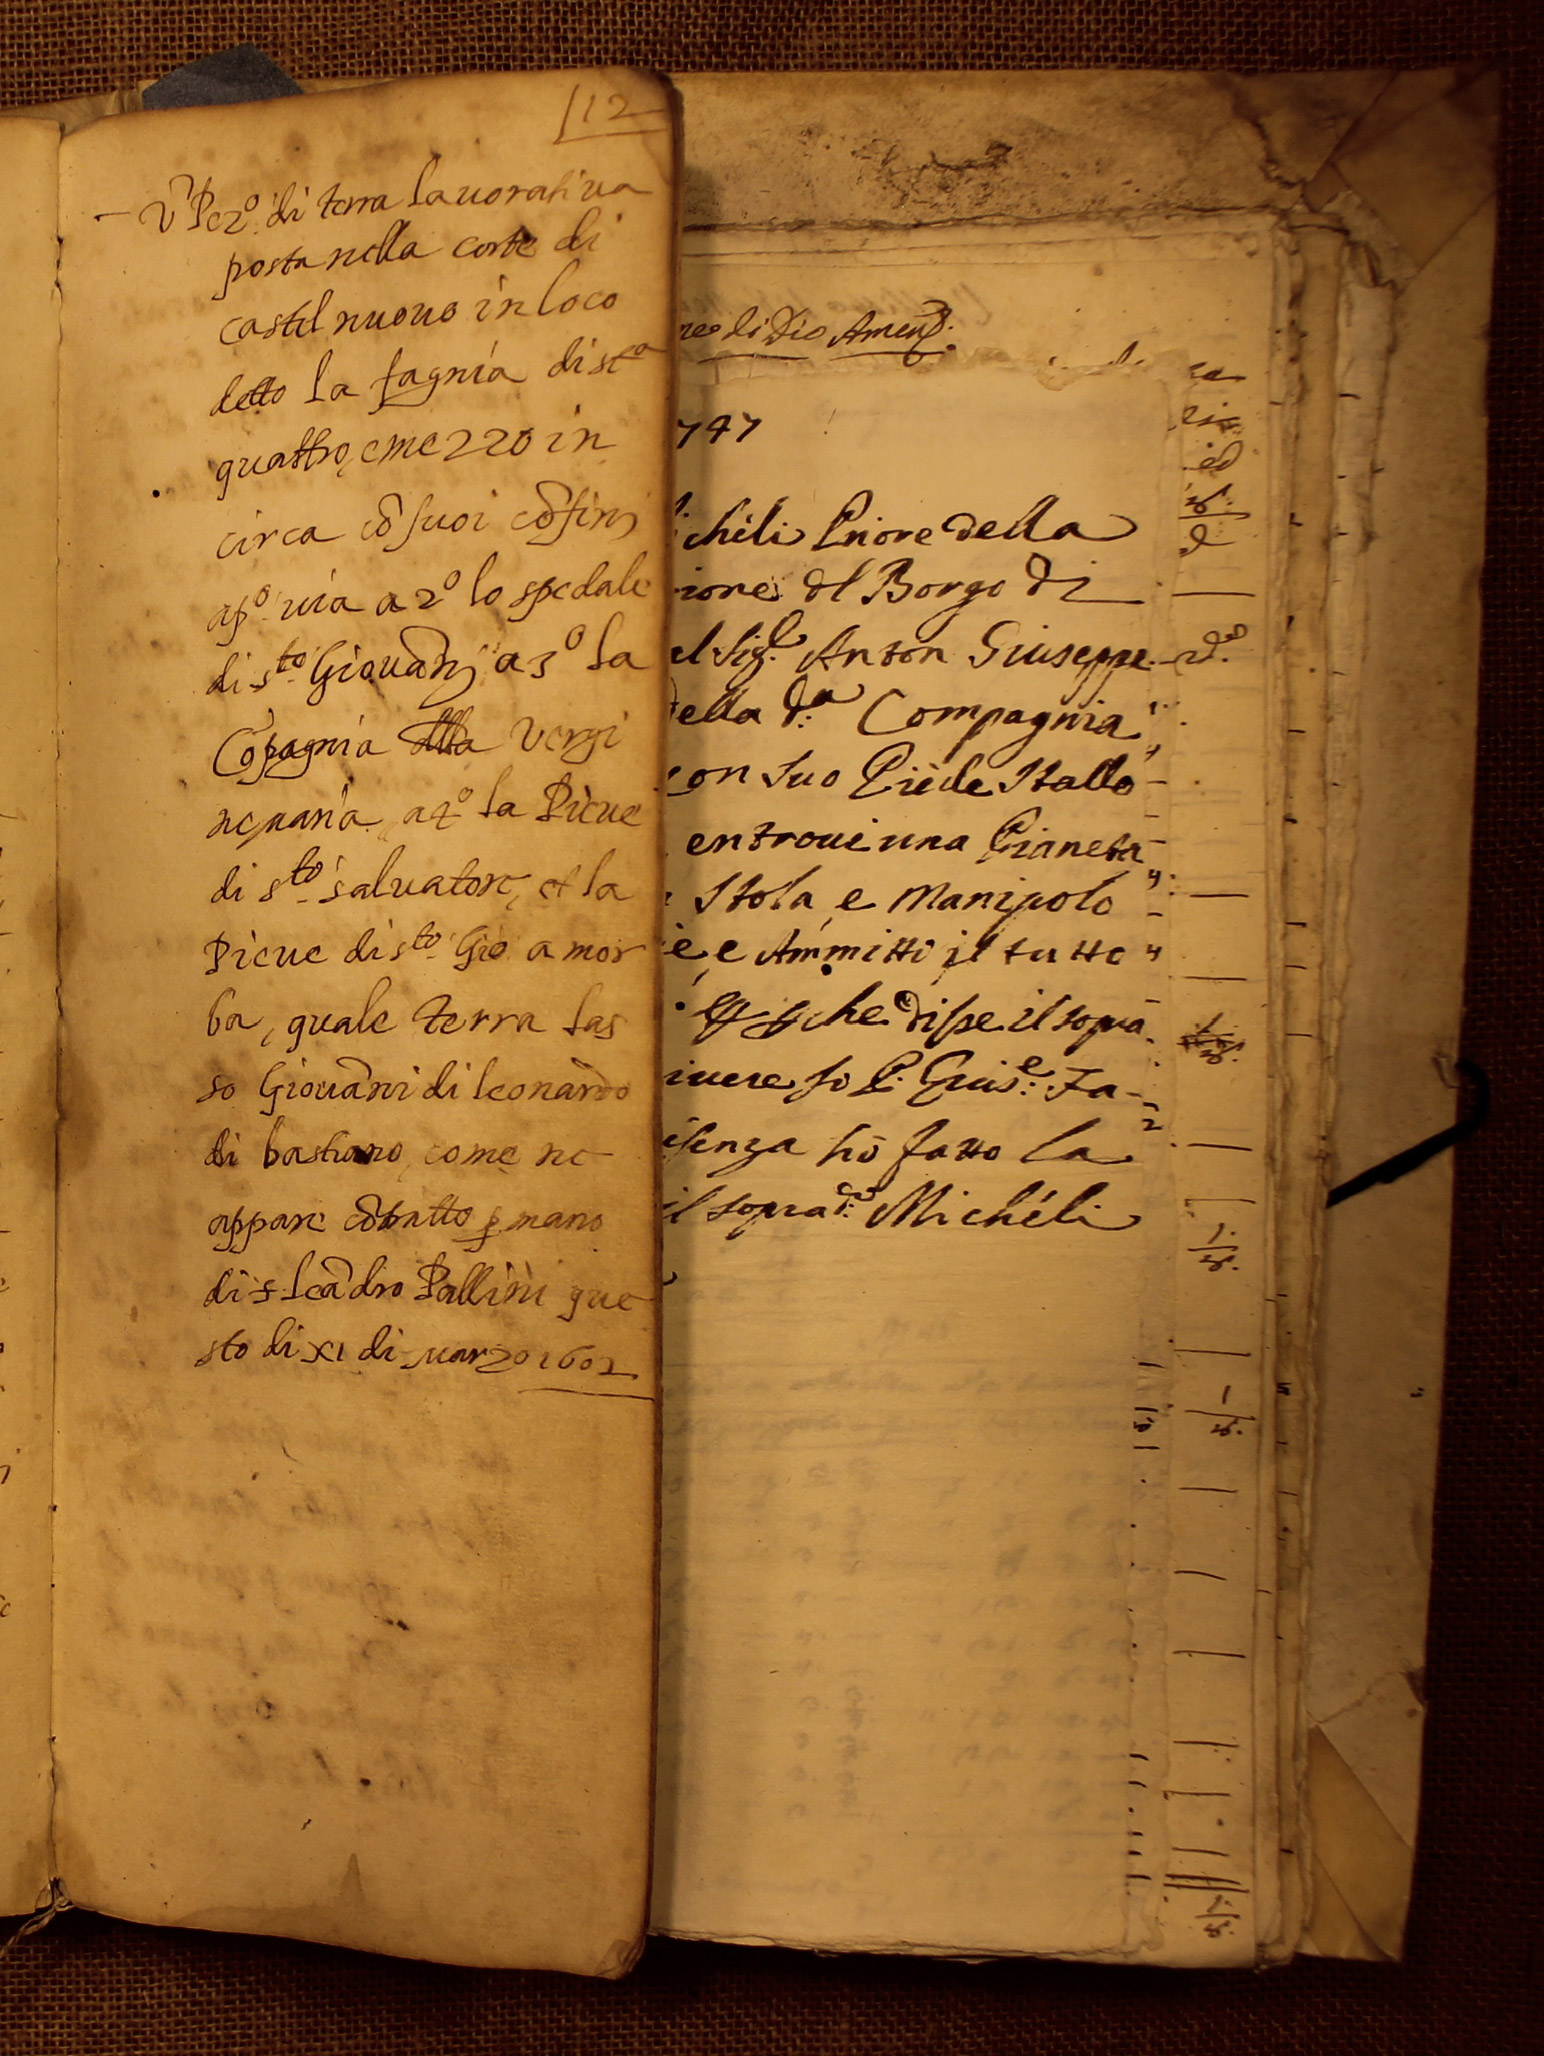 12
Ũ Pez.º di terra lauoratiua
posta nella corte di
castel nuouo in loco
detto la fagnia di st.ª
quattro, e mezzo in
circa cõ suoi cõfini
a pº uia a 2º lo spedale
di s.to Giouãnj a 3º la
Cõpagnia della Vergi
ne maria a 4º la Pieue
di s.to saluatore, et la
Pieue di s.to Gio a mor
ba, quale terra las
so Giouãni di leonardo
di bastiano, come ne
appare cõtratto p mano
di s leãdro Pallini que
sto di XI di marzo 1602
ne di Dio Amen
747
icheli Priore della
ione del Borgo di
el Sig.r Anton Giuseppe
della d.ª Compagnia
con suo Piede Stallo
entroui una Pianeta
Stola e Manipolo
e Ammitti il tutto
che disse il sopra
iuere Io P. Giuse.e Fa-
senza hò fatto la
il soprad.º Michéli